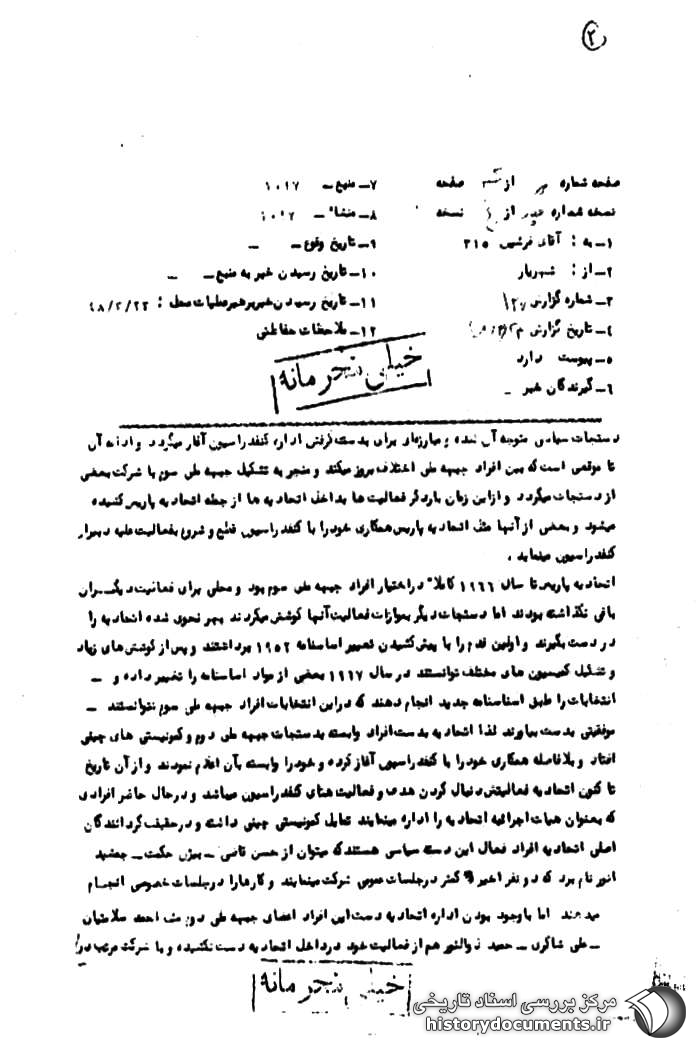 ۲
صفحه شماره از صفحه
نسخه شماره از نسخه
۱ـ به : آقای فرشین ۳۱۵
۲ـ از : شهریار
۳ـ شماره گزارش ۱۲۷
۴ـ تاریخ گزارش
۵ـ پیوست دارد
۶ـ گیرندگان خبر ـ
۷ـ منبع ـ ۱۰۱۷
۸ـ منشاء ـ ۱۰۱۷
۹ـ تاریخ وقوع ـ ـ
۱۰ـ تاریخ رسیدن خبر به منبع ـ ـ
۱۱ـ تاریخ رسیدن خبر برهبر عملیات محل : ۴۸/۲/۲۳
۱۲ـ ملاحظات حفاظتی
خیلی محرمانه
دستجات سیاسی متوجه آن شده و مبارزه‌ای برای بدست گرفتن اداره کنفدراسیون آغاز میگردد و ادامه آن
تا موقعی است که بین افراد جبهه ملی اختلاف بروز میکند و منجر به تشکیل جبهه ملی سوم با شرکت بعضی
از دستجات میگردد و از این زمان بار دگر فعالیت ها بداخل اتحادیه ها از جمله اتحادیه پاریس کشیده
میشود و بعضی از آنها مثل اتحادیه پاریس همکاری خود را با کنفدراسیون قطع و شروع بفعالیت علیه دبیران
کنفدراسیون مینماید .
اتحادیه پاریس تا سال ۱۹۶۶ کاملا" در اختیار افراد جبهه ملی سوم بود و محلی برای فعالیت دیگـــران
باقی نگذاشته بودند اما دستجات دیگر بموازات فعالیت آنها کوشش میکردند بهر نحوی شده اتحادیه را
در دست بگیرند و اولین قدم را با پیش کشیدن تغییر اساسنامه ۱۹۵۲ برداشتند و پس از کوشش های زیاد
و تشکیل کمیسیون های مختلف توانستند در سال ۱۹۶۷ بعضی از مواد اساسنامه را تغییر داده و ـ
انتخابات را طبق اساسنامه جدید انجام دهند که در این انتخابات افراد جبهه ملی سوم نتوانستند ـ
موفقیتی بدست بیاورند لذا اتحادیه بدست افراد وابسته بدستجات جبهه ملی دوم و کمونیستی های چینی
افتاد و بلافاصله همکاری خود را با کنفدراسیون آغاز کرده و خود را وابسته بآن اعلام نمودند و از آن تاریخ
تا کنون اتحادیه فعالیتش دنبال کردن هدف و فعالیت های کنفدراسیون میباشد و در حال حاضر افرادی
که بعنوان هیات اجرائیه اتحادیه را اداره مینمایند تمایل کمونیستی چینی داشته و در حقیقت گردانندگان
اصلی اتحادیه افراد فعال این دسته سیاسی هستند که میتوان از حسن قاضی ـ بیژن حکمت ـ جمشید
انور نام برد که دو نفر اخیر کمتر در جلسات عمومی شرکت مینمایند و کارها را در جلسات خصوصی انجـام
میدهند اما با وجود بودن اداره اتحادیه بدست این افراد اعضای جبهه ملی دوم مثل احمد سلامتیان
ـ علی شاکری ـ حمید ذوالنور هم از فعالیت خود در داخل اتحادیه دست نکشیده و با شرکت مرتب در
خیلی محرمانه
مرکز بررسی اسناد تاریخی
historydocuments.ir